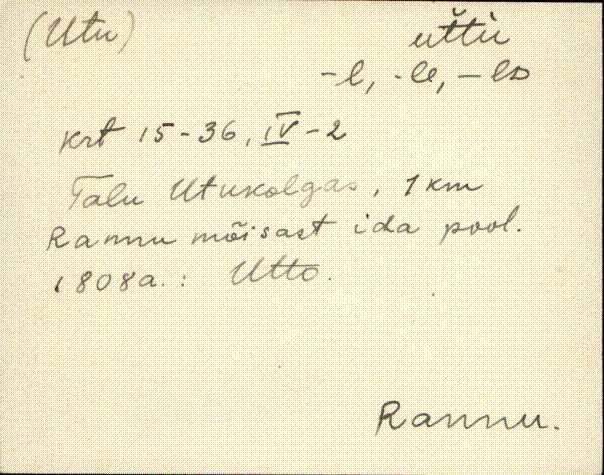 (Utu) uťtù
-l, -le, -lt
krt 15-36, IV-2
Talu Utukolgas, 1 km
Rannu mõisast ida pool.
1808a.: Utto.
Rannu.